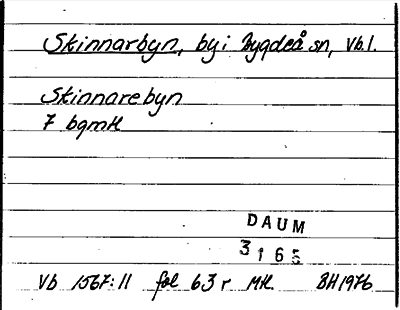 Skinnarbyn, by i Bygdeå sn, Vb.l.
Skinnarebyn
7 bgmtl
DAUM
3165
Vb 1567:11 fol 63r Mtl. BH1976